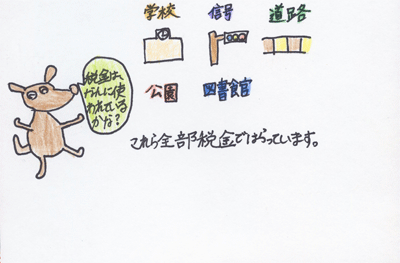 学校 信号 道路
公園 図書館
税金は、
なんに使
われている
かな?
これら全部税金ではらっています。